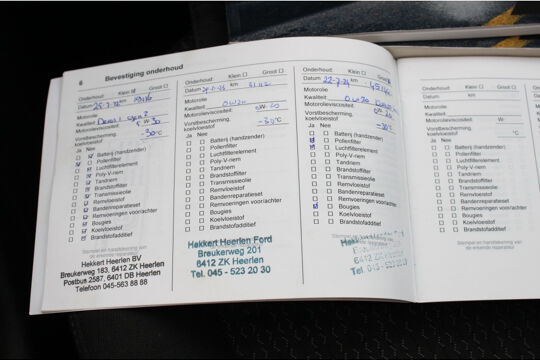 6 Bevestiging onderhoud
Onderhoud: Klein Groot
Datum km
Motorolie
Kwaliteit
Motorolieviscositeit: W-30
Vorstbescherming,
koelvloeistof -30°C
Ja Nee
Batterij (handzender)
Pollenfilter
Luchtfilterelement
Poly V-riem
Tandriem
Brandstoffilter
Transmissieolie
Remvloeistof
Bandenreparatieset
Remvoeringen voor/achter
Bougies
Koelvloeistof
Brandstofadditief
Stempel en handtekening van
de erkende reparateur
Hekkert Heerlen BV
Breukerweg 183, 6412 ZK Heerlen
Postbus 2587, 6401 DB Heerlen
Telefoon 045-563 88 88
Onderhoud: Klein Groot
Datum km
Motorolie
Kwaliteit 0W20
Motorolieviscositeit: W-20
Vorstbescherming,
koelvloeistof -30°C
Ja Nee
Batterij (handzender)
Pollenfilter
Luchtfilterelement
Poly V-riem
Tandriem
Brandstoffilter
Transmissieolie
Remvloeistof
Bandenreparatieset
Remvoeringen voor/achter
Bougies
Koelvloeistof
Brandstofadditief
Hekkert Heerlen Ford
Breukerweg 201
6412 ZK Heerlen
Tel. 045 - 523 20 30
Onderhoud: Klein Groot
Datum 22-7-24 km
Motorolie
Kwaliteit 0W20
Motorolieviscositeit:
Vorstbescherming,
koelvloeistof -30°
Ja Nee
Batterij (handzender)
Pollenfilter
Luchtfilterelement
Poly V-riem
Tandriem
Brandstoffilter
Transmissieolie
Remvloeistof
Bandenreparatieset
Remvoeringen voor/achter
Bougies
Koelvloeistof
Brandstofadditief
Onderhoud: Klein Groot
Datum km
Motorolie
Kwaliteit
Motorolieviscositeit: W-
Vorstbescherming,
koelvloeistof °C
Ja Nee
Batterij (handzender)
Pollenfilter
Luchtfilterelement
Poly V-riem
Tandriem
Brandstoffilter
Transmissieolie
Remvloeistof
Bandenreparatieset
Remvoeringen voor/achter
Bougies
Koelvloeistof
Brandstofadditief
Stempel en handtekening van
de erkende reparateur